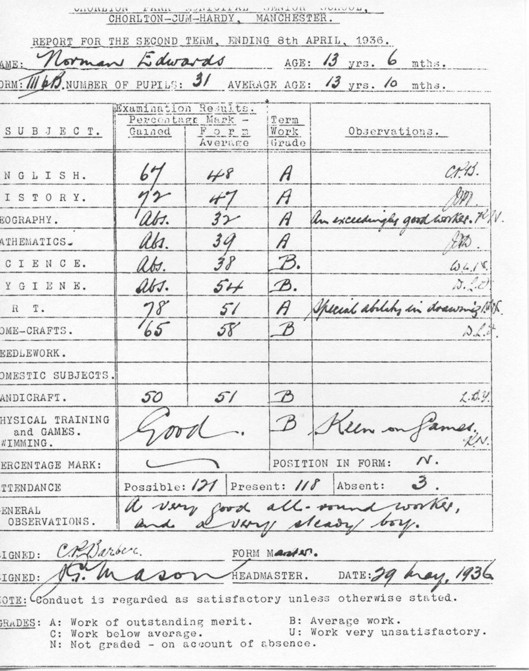 CHORLTON PARK MUNICIPAL SENIOR SCHOOL,
CHORLTON-CUM-HARDY, MANCHESTER.
REPORT FOR THE SECOND TERM, ENDING 8th APRIL, 1936.
AME: Norman Edwards AGE: 13 yrs. 6 mths.
ORM: NUMBER OF PUPILS: 31 AVERAGE AGE: 13 yrs. 10 mths.
Examination Results.
SUBJECT. Percentage Mark - Term
Gained Form Work Observations.
Average Grade
NGLISH. 67 48 A C.P.B.
ISTORY. 72 47 A
EOGRAPHY. Abs. 32 A An exceedingly good worker.
ATHEMATICS. Abs. 39 A
CIENCE. Abs. 38 B.
YGIENE. Abs. 54 B.
RT. 78 51 A Special ability in drawing
OME-CRAFTS. 65 58 B
EEDLEWORK.
OMESTIC SUBJECTS.
ANDICRAFT. 50 51 B
HYSICAL TRAINING
and GAMES. Good. B Keen on Games.
WIMMING. R.N.
ERCENTAGE MARK: POSITION IN FORM: N.
TTENDANCE Possible: 121 Present: 118 Absent: 3.
ENERAL A very good all-round worker,
OBSERVATIONS. and a very steady boy.
IGNED: C.P. Barber. FORM Master.
IGNED: Mason HEADMASTER. DATE: 29 May, 1936
NOTE: Conduct is regarded as satisfactory unless otherwise stated.
GRADES: A: Work of outstanding merit. B: Average work.
C: Work below average. U: Work very unsatisfactory.
N: Not graded - on account of absence.